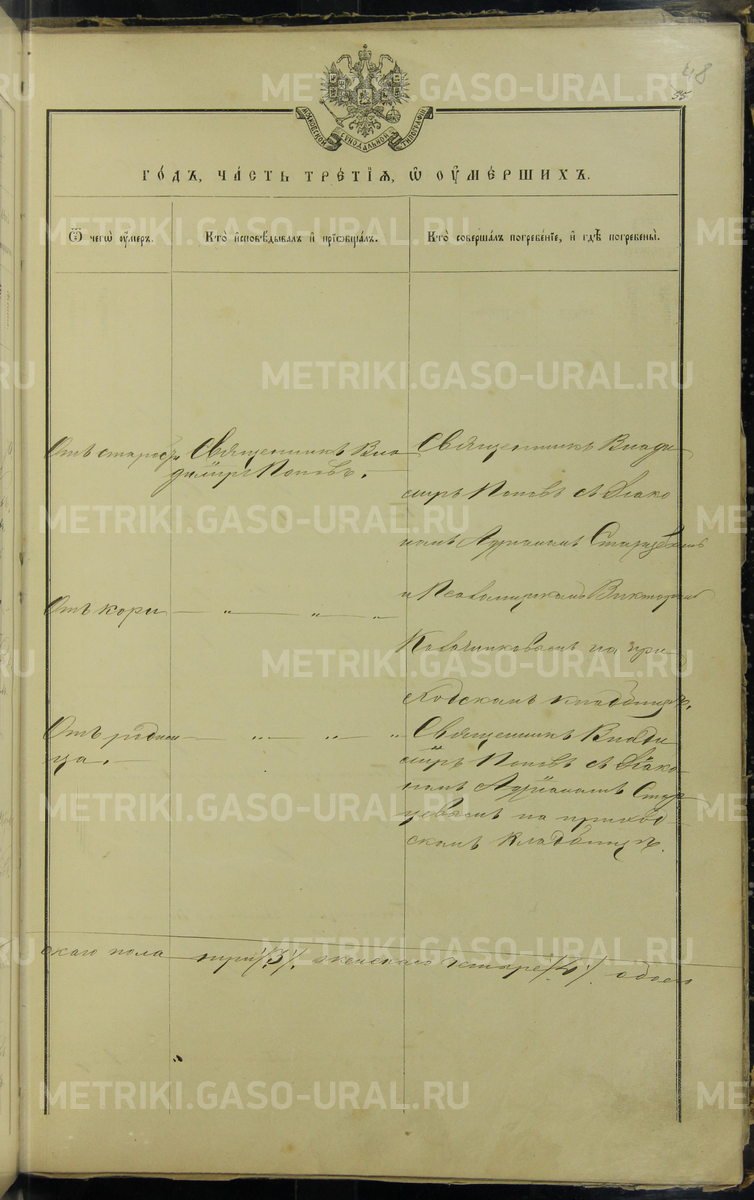 48
55
МОСКОВСКОЙ СѴНОДАЛЬНОЙ ТИПОГРАФІИ
ГО́ДЪ, ЧА́СТЬ ТРЕ́ТІѦ, Ѡ ОУ҆МЕ́РШИХЪ.
Ѿ чегѡ̀ ᲂу҆́меръ.
Кто̀ и҆сповѣ́дывалъ и҆ прїѡбща́лъ.
Кто̀ соверша́лъ погребе́нїе, и҆ гдѣ̀ погребены̀.
Отъ старости
Священникъ Вла
димiръ Поповъ.
Священникъ Влади
миръ Поповъ съ Діако
номъ
и Псаломщикомъ Викторомъ
на при
ходскомъ кладбищѣ.
Отъ кори — „ — „ — „
Отъ родим
ца. — „ — „ — „
Священникъ Влади
міръ Поповъ съ Діако
номъ
на приход
скомъ кладбищѣ.
скаго пола три /3/. женскаго четыре /4/. обоего
METRIKI.GASO-URAL.RU